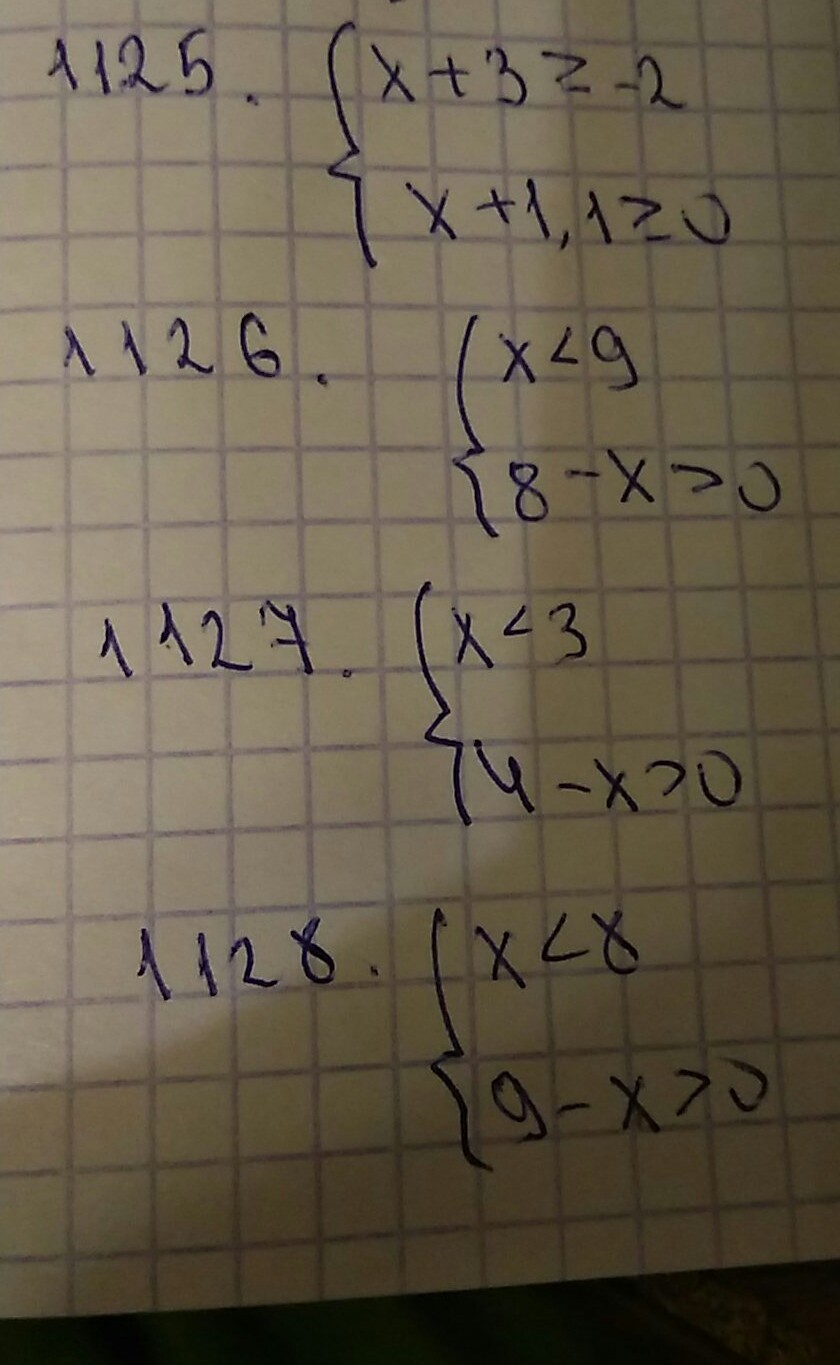 1125. { x + 3 ≥ -2
x + 1,1 ≥ 0
1126. { x < 9
8 - x > 0
1127. { x < 3
4 - x > 0
1128. { x < 8
9 - x > 0